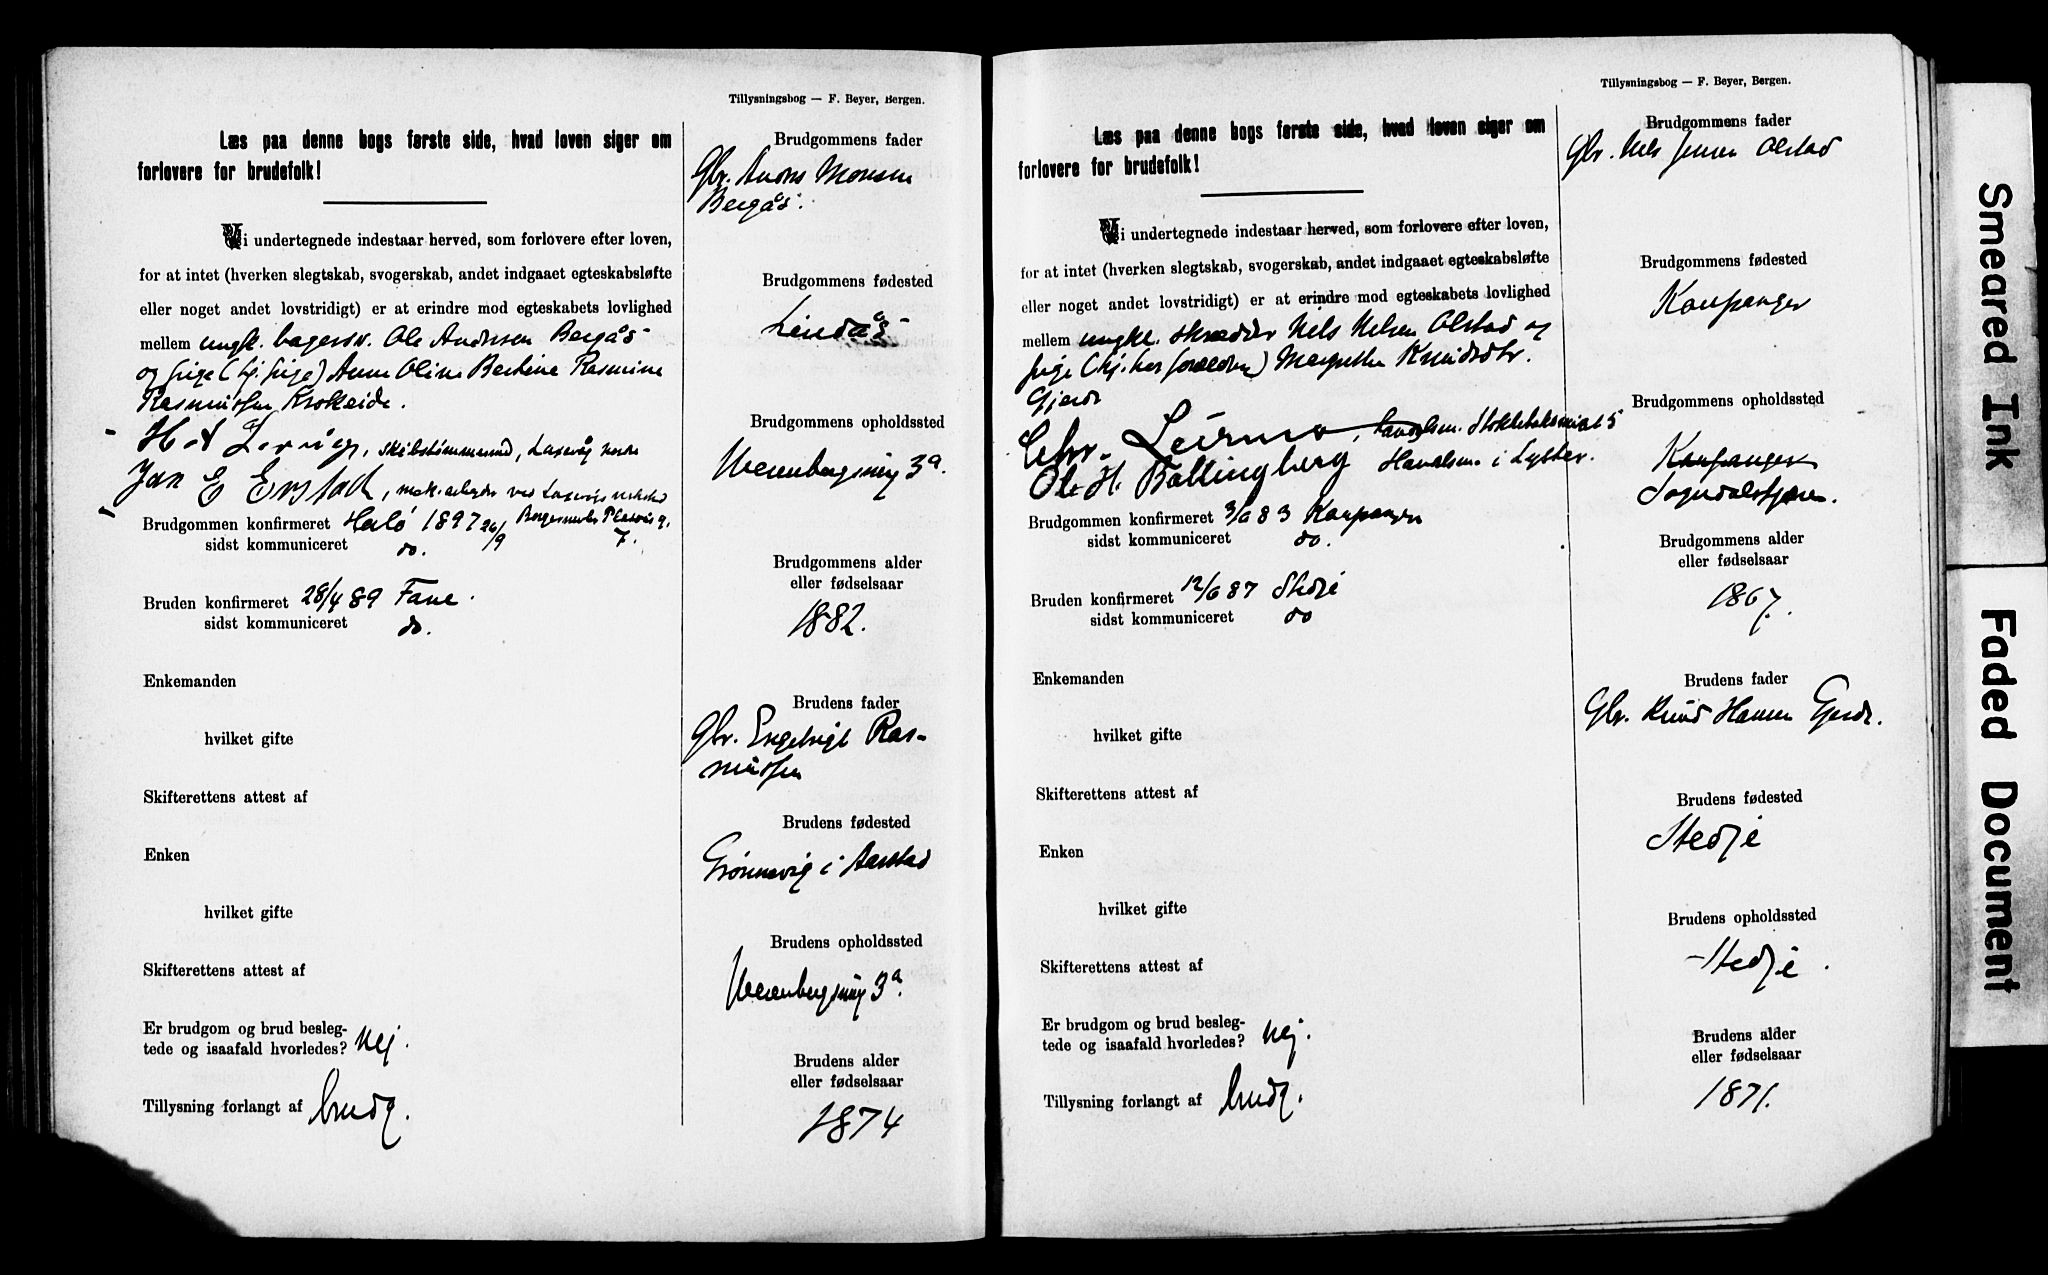 Tillysningsbog — F. Beyer, Bergen.
Læs paa denne bogs første side, hvad loven siger om
forlovere for brudefolk!
Vi undertegnede indestaar herved, som forlovere efter loven,
for at intet (hverken slegtskab, svogerskab, andet indgaaet egteskabsløfte
eller noget andet lovstridigt) er at erindre mod egteskabets lovlighed
mellem ungk. bagersv. Ole Andersen Bergås
og pige (hj. pige) Anne Oline Bertine Rasmine
Rasmussen Krokeide.
skibstømmermand, Laxevåg
Jan E Erstad, ved
Brudgommen konfirmeret Herlø 1897 26/9
sidst kommuniceret do.
7.
Bruden konfirmeret 28/4 89 Fane.
sidst kommuniceret do.
Enkemanden
hvilket gifte
Skifterettens attest af
Enken
hvilket gifte
Skifterettens attest af
Er brudgom og brud besleg-
tede og isaafald hvorledes? Nej.
Tillysning forlangt af brudg.
Brudgommens fader
Gbr. Anders Monsen
Bergås.
Brudgommens fødested
Lindås
Brudgommens opholdssted
3a.
Brudgommens alder
eller fødselsaar
1882.
Brudens fader
Gbr. Engelbrigt Ras-
mussen
Brudens fødested
Grønnevig i Aarstad
Brudens opholdssted
3a.
Brudens alder
eller fødselsaar
1874
Tillysningsbog — F. Beyer, Bergen.
Læs paa denne bogs første side, hvad loven siger om
forlovere for brudefolk!
Vi undertegnede indestaar herved, som forlovere efter loven,
for at intet (hverken slegtskab, svogerskab, andet indgaaet egteskabsløfte
eller noget andet lovstridigt) er at erindre mod egteskabets lovlighed
mellem ungk. skrædder Nels Nelsen Olstad og
pige (hj. hos forældre) Margrethe Knudsdtr.
Gjerde
Chr. Leirmo, Handelsm. 5
Ole H. Bollingberg Handelsm. i Lyster.
Brudgommen konfirmeret 3/6 83 Kaupanger
sidst kommuniceret do.
Bruden konfirmeret 12/6 87 Stedje
sidst kommuniceret do
Enkemanden
hvilket gifte
Skifterettens attest af
Enken
hvilket gifte
Skifterettens attest af
Er brudgom og brud besleg-
tede og isaafald hvorledes? Nej.
Tillysning forlangt af brudg.
Brudgommens fader
Gbr. Nels Jensen Olstad
Brudgommens fødested
Kaupanger
Brudgommens opholdssted
Kaupanger
Sogndalsfjøren.
Brudgommens alder
eller fødselsaar
1867.
Brudens fader
Gbr. Knud Hansen Gjerde.
Brudens fødested
Stedje
Brudens opholdssted
Stedje.
Brudens alder
eller fødselsaar
1871.
Smeared Ink
Faded Document